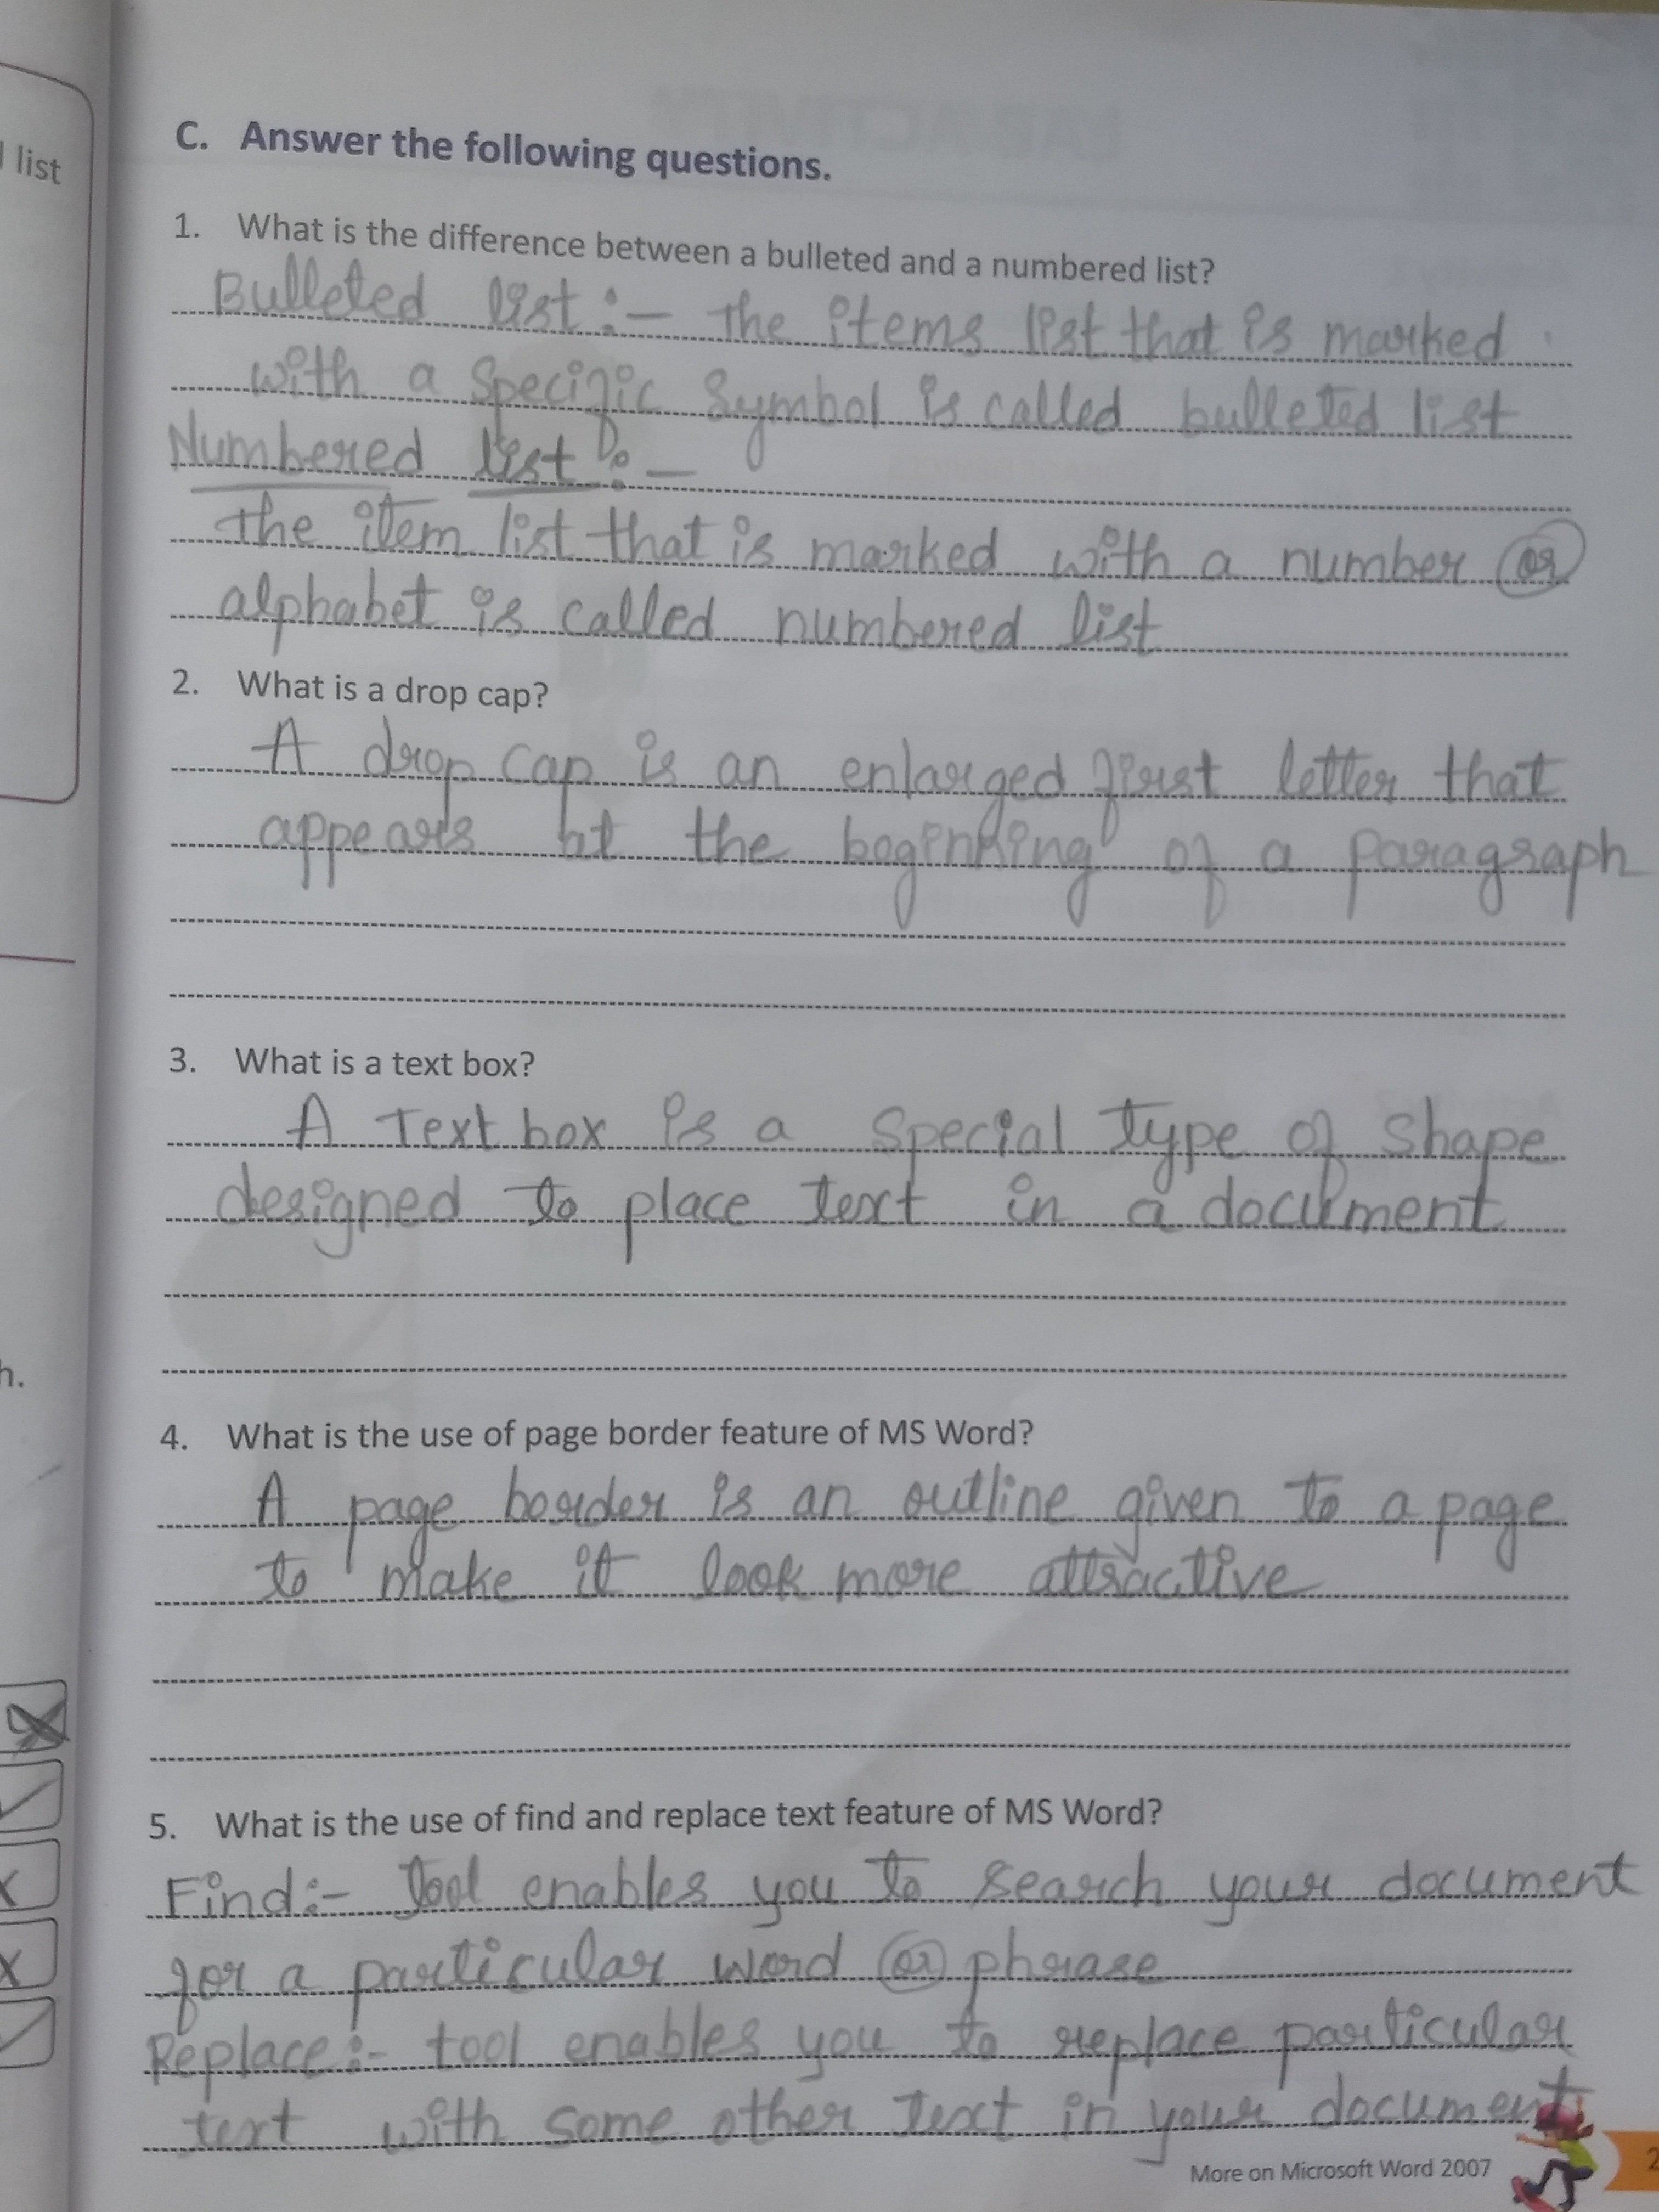 list
C. Answer the following questions.
1. What is the difference between a bulleted and a numbered list?
Bulleted list:- The items list that is marked
with a specific symbol is called bulleted list
Numbered list:-
The item list that is marked with a number or
alphabet is called numbered list
2. What is a drop cap?
A drop cap is an enlarged first letter that
appears at the beginning of a paragraph
3. What is a text box?
A Text box is a special type of shape
designed to place text in a document
h.
4. What is the use of page border feature of MS Word?
A page border is an outline given to a page
to make it look more attractive
5. What is the use of find and replace text feature of MS Word?
Find:- Tool enables you to search your document
for a particular word or phrase
Replace:- tool enables you to replace particular
text with some other text in your document
More on Microsoft Word 2007
2